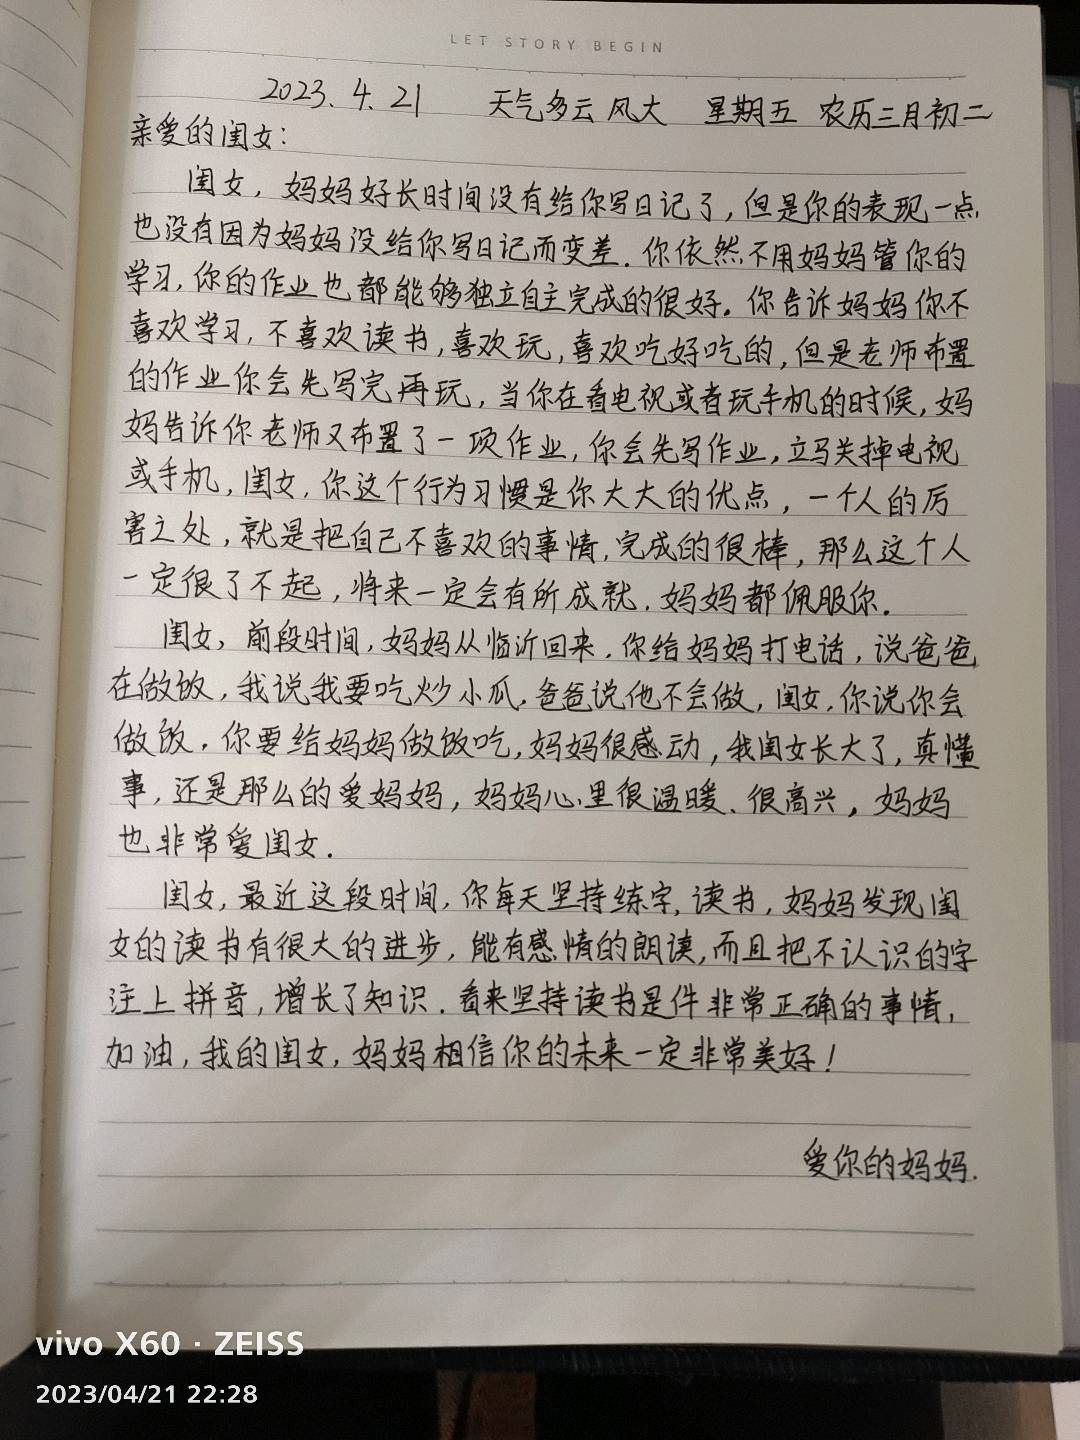 LET STORY BEGIN
2023. 4. 21 天气多云 风大 星期五 农历三月初二
亲爱的闺女:
闺女，妈妈好长时间没有给你写日记了，但是你的表现一点
也没有因为妈妈没给你写日记而变差．你依然不用妈妈管你的
学习，你的作业也都能够独立自主完成的很好。你告诉妈妈你不
喜欢学习，不喜欢读书，喜欢玩，喜欢吃好吃的，但是老师布置
的作业你会先写完再玩，当你在看电视或者玩手机的时候，妈
妈告诉你老师又布置了一项作业，你会先写作业，立马关掉电视
或手机，闺女，你这个行为习惯是你大大的优点，一个人的厉
害之处，就是把自己不喜欢的事情，完成的很棒，那么这个人
一定很了不起，将来一定会有所成就．妈妈都佩服你．
闺女，前段时间，妈妈从临沂回来．你给妈妈打电话，说爸爸
在做饭，我说我要吃炒小瓜．爸爸说他不会做，闺女，你说你会
做饭．你要给妈妈做饭吃，妈妈很感动，我闺女长大了，真懂
事，还是那么的爱妈妈，妈妈心里很温暖、很高兴，妈妈
也非常爱闺女．
闺女，最近这段时间，你每天坚持练字，读书，妈妈发现闺
女的读书有很大的进步，能有感情的朗读，而且把不认识的字
注上拼音，增长了知识．看来坚持读书是件非常正确的事情，
加油，我的闺女，妈妈相信你的未来一定非常美好！
爱你的妈妈．
vivo X60 · ZEISS
2023/04/21 22:28